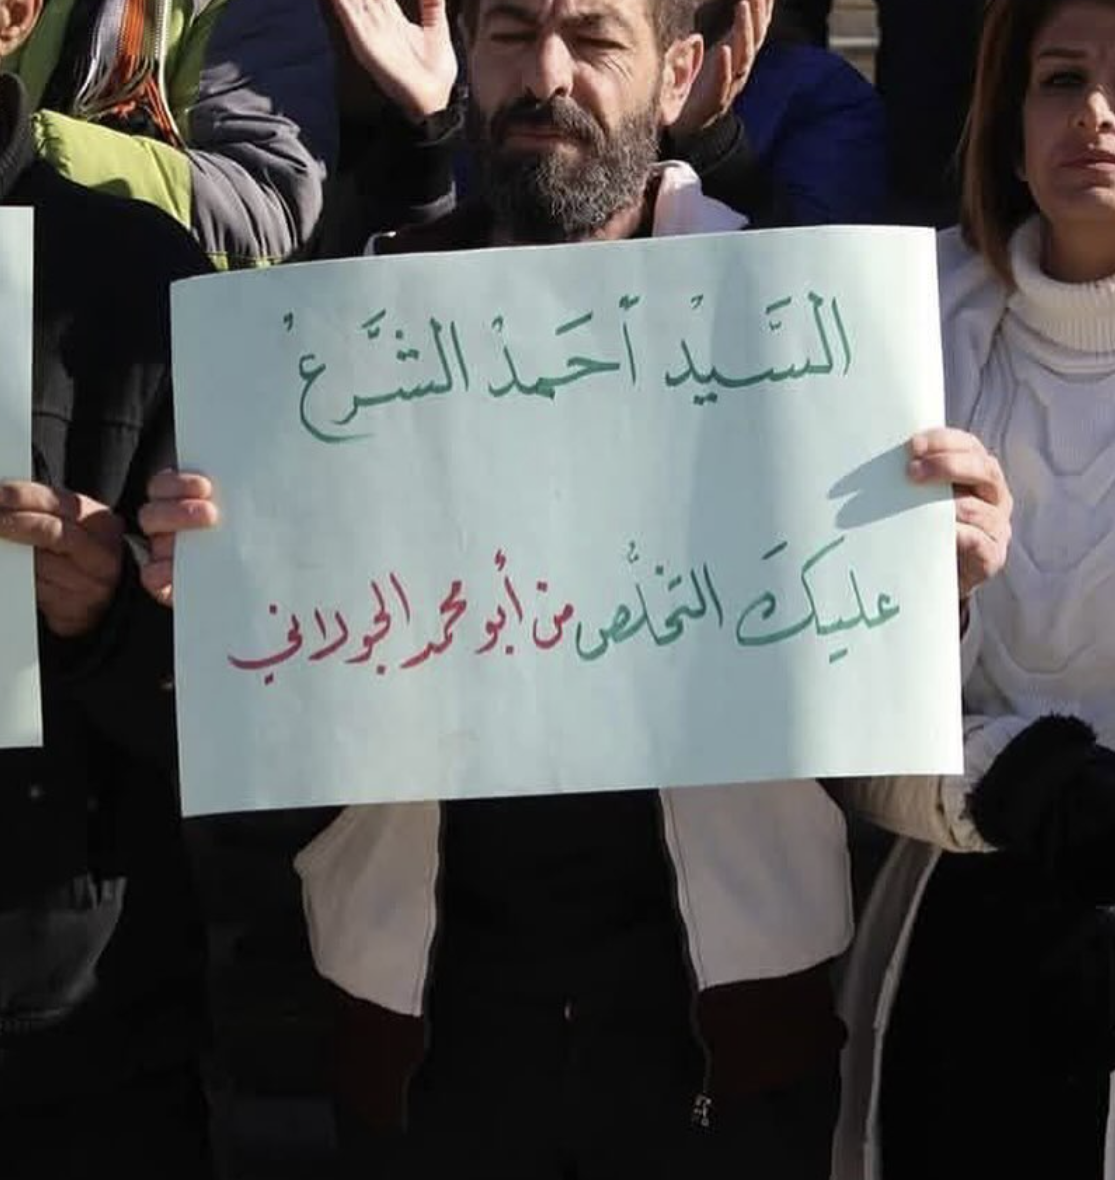 السَّيِّدُ أَحمَدْ الشَّرعُ
عليكَ التخلُّص من أبو محمد الجولاني